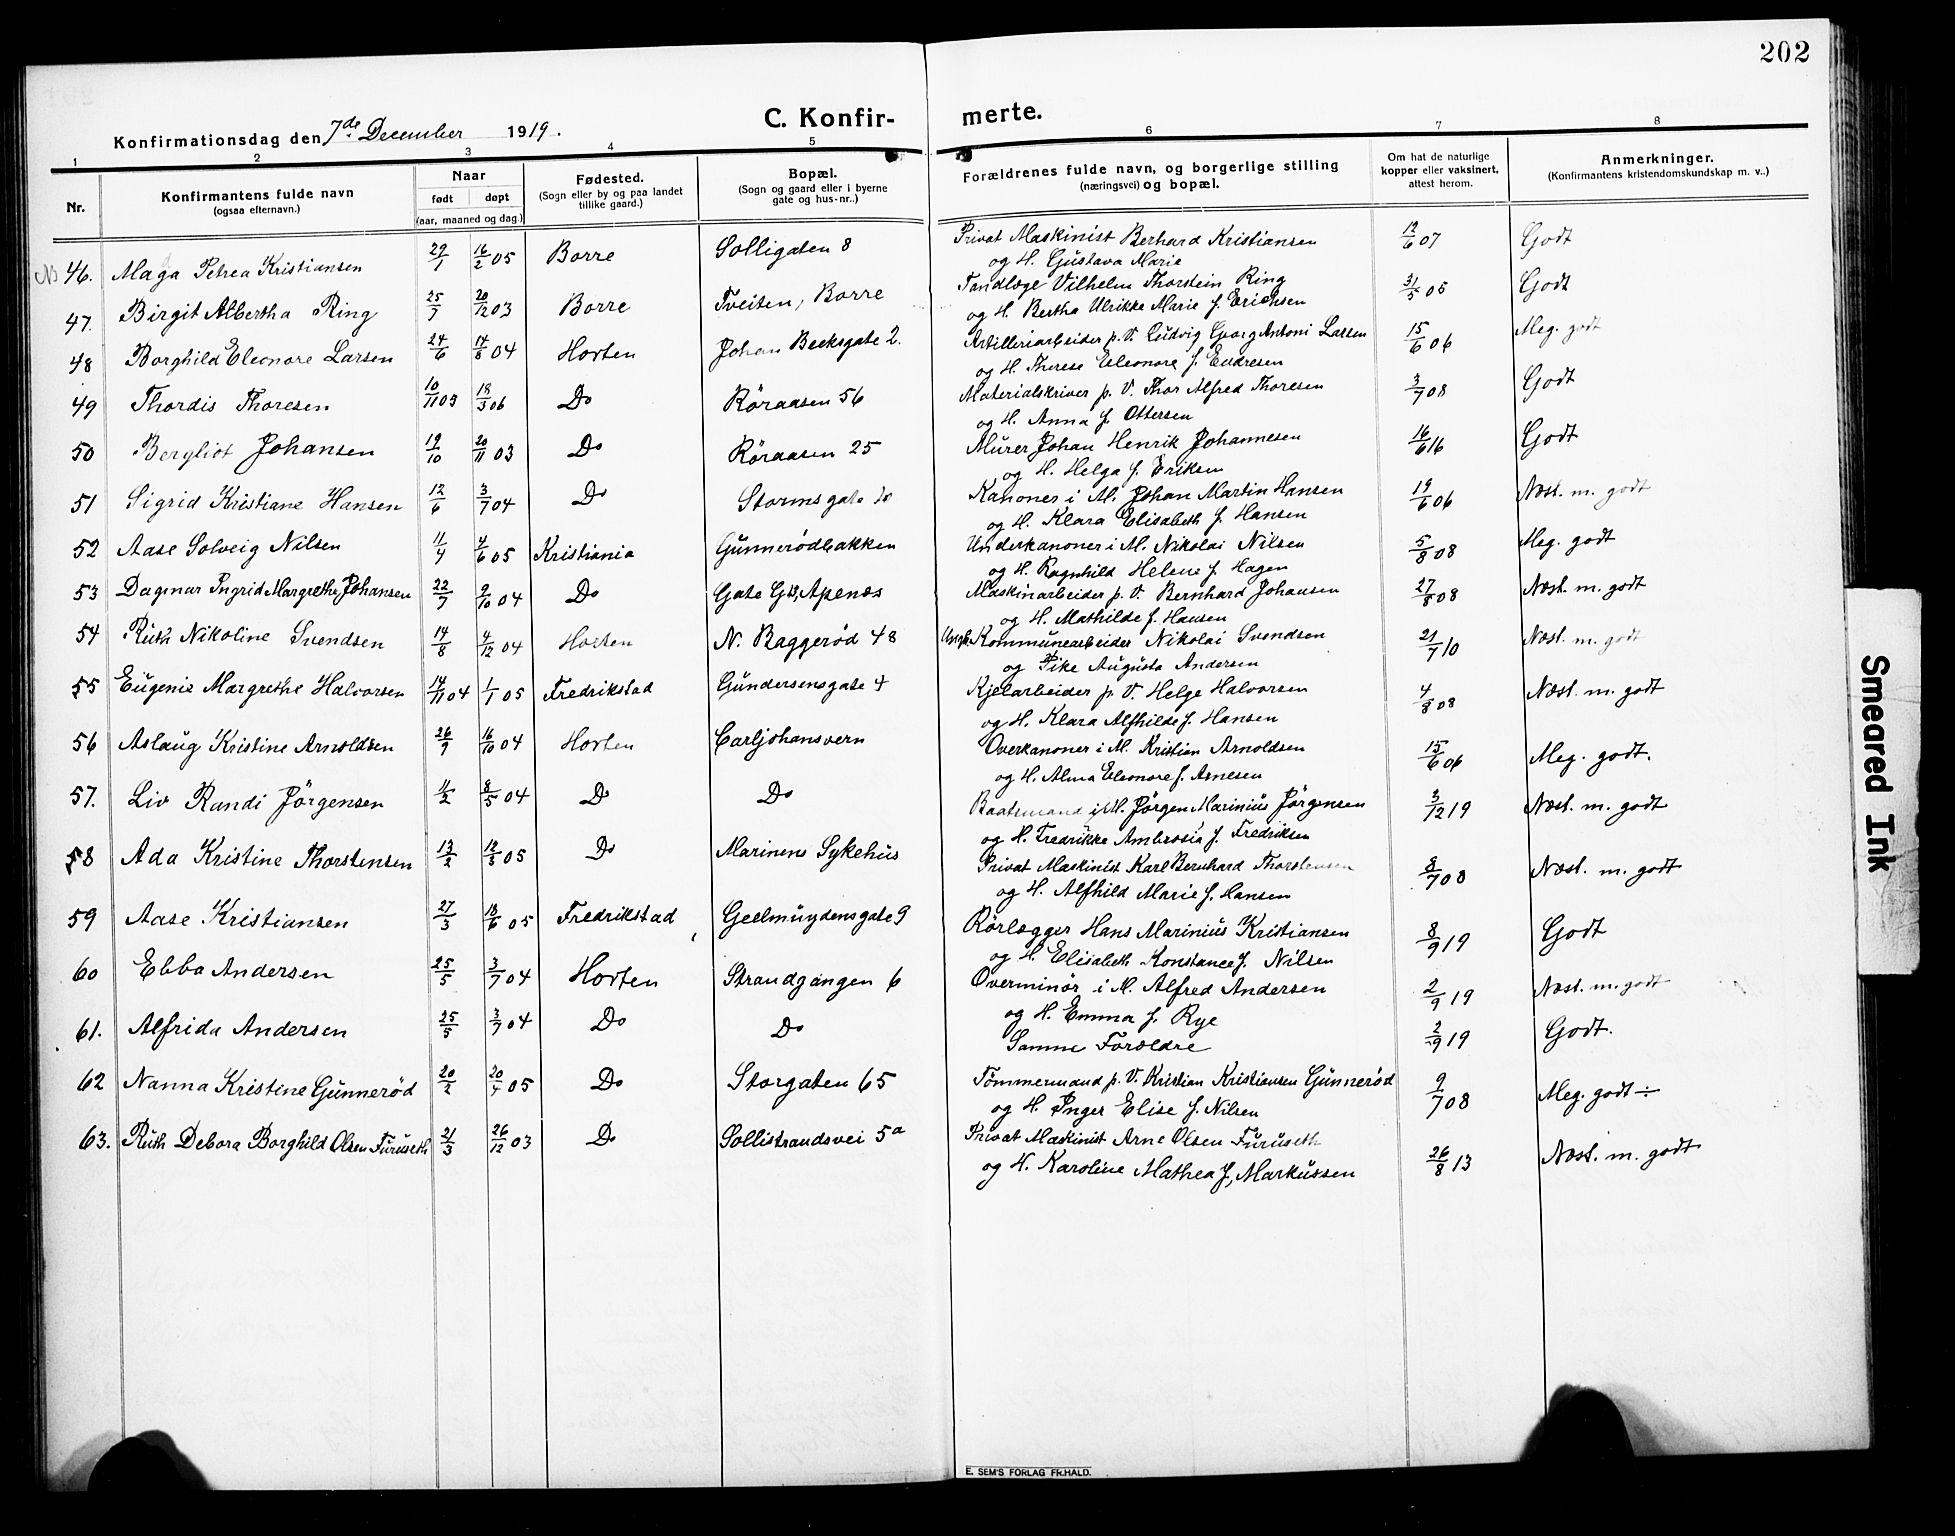 202
Konfirmationsdag den 7de December 1919.
C. Konfir-
merte.
1 2 3 4 5 6 7 8
Nr.
Konfirmantens fulde navn
(ogsaa efternavn.)
Naar
født døpt
(aar, maaned og dag.)
Fødested.
(Sogn eller by og paa landet
tillike gaard.)
Bopæl.
(Sogn og gaard eller i byerne
gate og hus-nr..)
Forældrenes fulde navn, og borgerlige stilling
(næringsvei) og bopæl.
Om hat de naturlige
kopper eller vaksinert,
attest herom.
Anmerkninger.
(Konfirmantens kristendomskundskap m. v..)
46. Maga Petrea Kristiansen 29/1 16/2 05 Borre Solligaten 8 Privat Maskinist Berhard Kristiansen 12/6 07 Godt
og H. Gustava Marie
47. Birgit Albertha Ring 25/7 20/12 03 Borre Tveiten, Borre Tandlæge Vilhelm Thorstein Ring 31/5 05 Godt
og H. Bertha Ulrikke Marie f. Erichsen
48 Borghild Eleonore Larsen 24/6 14/8 04 Horten Johan Becksgate 2. Artilleriarbeider p. V. Ludvig Georg Antoni Larsen 15/6 06 Meg. godt
og H. Therese Eleonore f. Endresen
49 Thordis Thoresen 10/11 03 18/3 06 Do Röraasen 56 Materialskriver p. V. Thor Alfred Thoresen 3/7 08 Godt
og H. Anna f. Ottersen
50 Bergliot Johansen 19/10 20/11 03 Do Röraasen 25 Murer Johan Henrik Johannesen 16/6 16 Godt
og H. Helga f. Eriksen
51 Sigrid Kristiane Hansen 12/6 3/7 04 Do Stormsgate Kanoner i M. Johan Martin Hansen 19/6 06 Næst. m. godt
og H. Klara Elisabeth f. Hansen
52 Aase Solveig Nilsen 11/4 4/6 05 Kristiania Gunnerödbakken Underkanoner i M. Nikolai Nilsen 5/8 08 Meg. godt
og H. Ragnhild Helene f. Hagen
53 Dagmar Ingrid Margrethe Johansen 22/7 9/10 04 Do Gate Apenæs Maskinarbeider p. V. Bernhard Johansen 27/8 08 Næst. m. godt
og H. Mathilde f. Hansen
54 Ruth Nikoline Svendsen 14/8 4/12 04 Horten N. Baggerød 48 Kommunearbeider Nikolai Svendsen 21/7 10 Næst. m. godt
og Pike Augusta Andersen
55 Eugenie Margrethe Halvorsen 14/11 04 1/1 05 Fredrikstad Gundersensgate 4 Kjelarbeider p. V. Helge Halvorsen 4/8 08 Næst. m. godt
og H. Klara Alfhilde f. Hansen
56 Aslaug Kristine Arnoldsen 26/9 16/10 04 Horten Carljohansvern Overkanoner i M. Kristian Arnoldsen 15/6 06 Meg. godt.
og H. Alma Eleonore f. Arnesen
57. Liv Randi Jörgensen 11/2 8/5 04 Do Do Baatsmand i M. Jörgen Marinius Jörgensen 3/12 19 Næst. m. godt
og H. Fredrikke Ambrosia f. Fredriksen
58 Ada Kristine Thorstensen 13/2 12/3 05 Do Marinens Sykehus Privat Maskinist Karl Bernhard Thorstensen 8/7 08 Næst. m. godt
og H. Alfhild Marie f. Hansen
59 Aase Kristiansen 27/3 18/6 05 Fredrikstad Geelmuydensgate 9 Rörlægger Hans Marinius Kristiansen 8/9 19 Godt
og H. Elisabeth Konstance f. Nilsen
60 Ebba Andersen 25/5 3/7 04 Horten Strandgangen 6 Overminör i M. Alfred Andersen 2/9 19 Næst. m. godt
og H. Emma f. Rye
61. Alfrida Andersen 25/5 3/7 04 Do Do Samme Forældre 2/9 19 Godt.
62 Nanna Kristine Gunneröd 20/2 20/4 05 Do Storgaten 65 Tömmermand p. V. Kristian Kristiansen Gunneröd 9/7 08 Meg. godt ÷
og H. Inger Elise f. Nilsen
63. Ruth Debora Borghild Olsen Furuseth 21/3 26/12 03 Do Sollistrandsvei 5a Privat Maskinist Arne Olsen Furuseth 26/8 13 Næst. m. godt
og H. Karoline Mathea f. Markussen
E. SEM'S FORLAG FR.HALD.
Smeared Ink